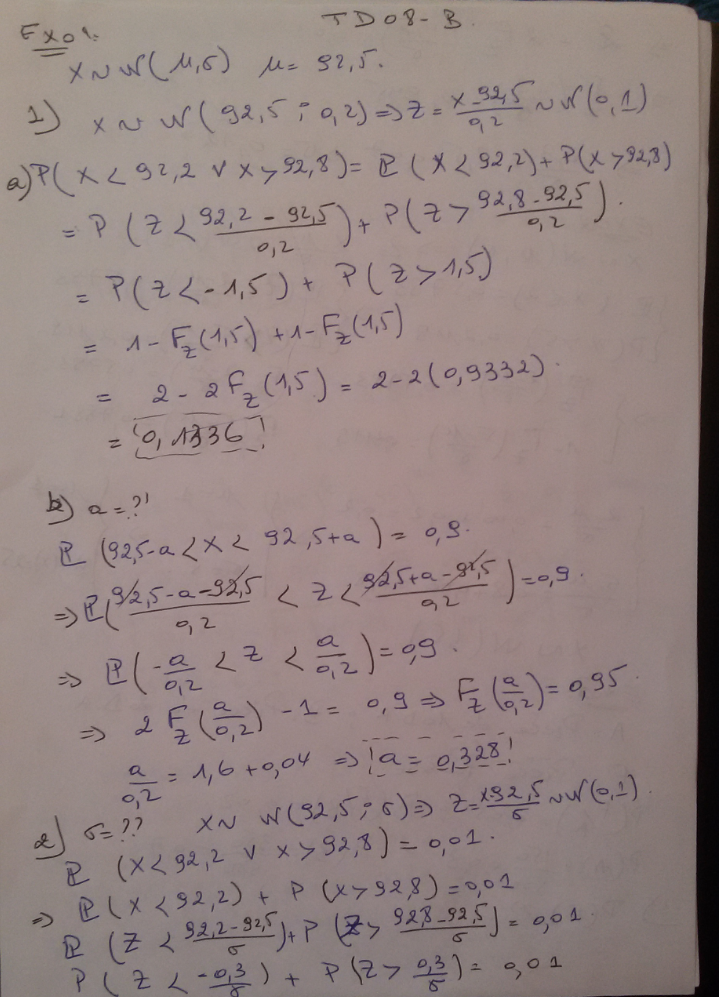 TD08-B.
Exo1.
X ~ N(μ,σ) μ = 92,5.
1) X ~ N(92,5 ; 0,2) => Z = (x-92,5)/0,2 ~ N(0,1)
a) P(X < 92,2 ∨ X > 92,8) = P(X < 92,2) + P(X > 92,8)
= P(Z < (92,2 - 92,5)/0,2) + P(Z > (92,8 - 92,5)/0,2).
= P(Z < -1,5) + P(Z > 1,5)
= 1 - F_Z(1,5) + 1 - F_Z(1,5)
= 2 - 2 F_Z(1,5) = 2 - 2(0,9332).
= 0,1336
b) a = ??
P(92,5-a < X < 92,5+a) = 0,9.
=> P((92,5-a-92,5)/0,2 < Z < (92,5+a-92,5)/0,2) = 0,9.
=> P(-a/0,2 < Z < a/0,2) = 0,9.
=> 2 F_Z(a/0,2) - 1 = 0,9 => F_Z(a/0,2) = 0,95.
a/0,2 = 1,6 + 0,04 => a = 0,328
2) σ = ?? X ~ N(92,5 ; σ) => Z = (x-92,5)/σ ~ N(0,1).
P(X < 92,2 ∨ X > 92,8) = 0,01.
=> P(X < 92,2) + P(X > 92,8) = 0,01
P(Z < (92,2-92,5)/σ) + P(Z > (92,8-92,5)/σ) = 0,01.
P(Z < -0,3/σ) + P(Z > 0,3/σ) = 0,01